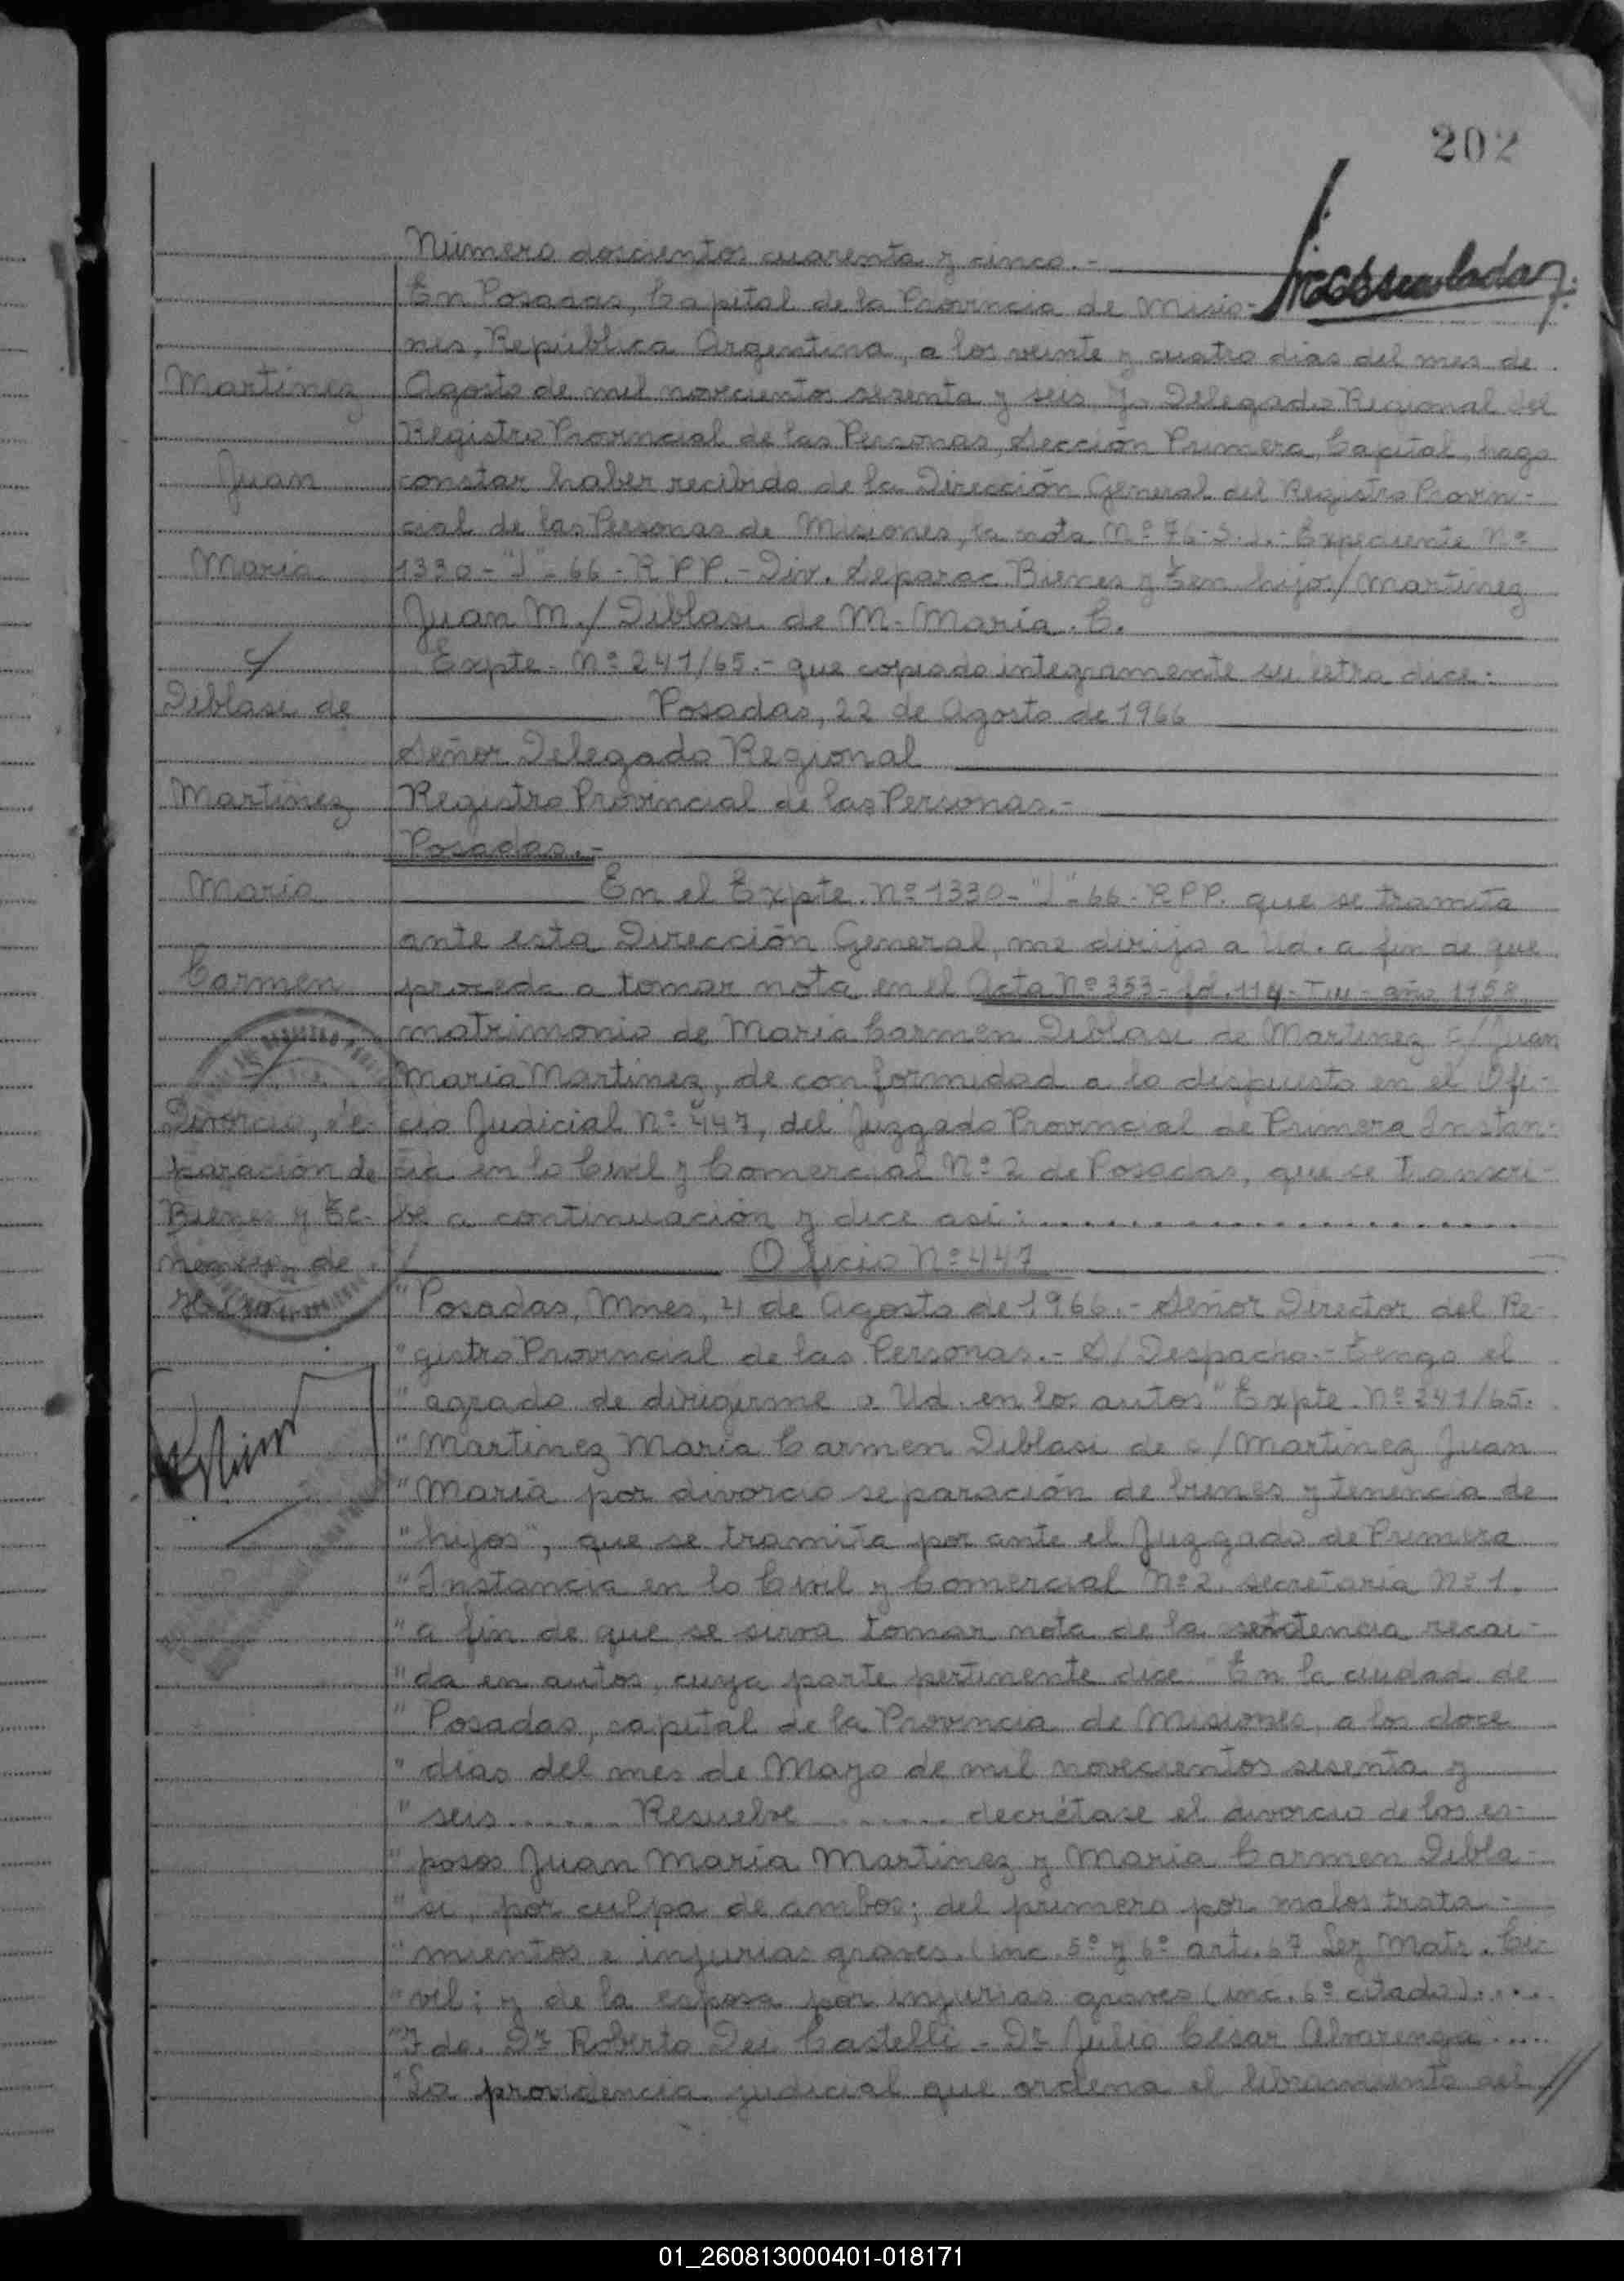 202
Número doscientos cuarenta y cinco.-
En Posadas, Capital de la Provincia de Misio-
nes, República Argentina, a los veinte y cuatro dias del mes de
Agosto de mil novecientos sesenta y seis, Yo Delegado Regional del
Registro Provincial de las Personas, Sección Primera, Capital, hago
constar haber recibido de la Dirección General del Registro Provin-
cial de las Personas de Misiones, la nota Nº 76-S.J.- Expediente Nº
1330-"J"-66-R.P.P.-Div. Separac. Bienes y Ten hijos/Martinez
Juan M./Diblasi de M. Maria. C.
Expte. Nº 241/65.- que copiado integramente su letra dice:
Posadas, 22 de Agosto de 1966
Señor Delegado Regional
Registro Provincial de las Personas.-
Posadas.-
En el Expte. Nº 1330-"J"-66-R.P.P. que se tramita
ante esta Dirección General, me dirijo a Ud. a fin de que
proceda a tomar nota en el Acta Nº 353-fol. 114-T III-año 1958
matrimonio de Maria Carmen Diblasi de Martinez c/Juan
Maria Martinez, de conformidad a lo dispuesto en el Ofi-
cio Judicial Nº 447, del Juzgado Provincial de Primera Instan-
cia en lo Civil y Comercial Nº 2 de Posadas, que se transcri-
be a continuación y dice asi:....................
Oficio Nº 447
"Posadas, Mnes, 4 de Agosto de 1966.- Señor Director del Re-
"gistro Provincial de las Personas.- S/Despacho.- Tengo el
"agrado de dirigirme a Ud. en los autos "Expte. Nº 241/65.
"Martinez Maria Carmen Diblasi de c/Martinez Juan
"Maria por divorcio separación de bienes y tenencia de
"hijos", que se tramita por ante el Juzgado de Primera
"Instancia en lo Civil y Comercial Nº 2, secretaria Nº 1.
"a fin de que se sirva tomar nota de la sentencia recai-
"da en autos, cuya parte pertinente dice: "En la ciudad de
"Posadas, capital de la Provincia de Misiones, a los doce
"dias del mes de Mayo de mil novecientos sesenta y
"seis....... Resuelve ....... decrétase el divorcio de los es-
"posos Juan Maria Martinez y Maria Carmen Dibla-
"si, por culpa de ambos; del primero por malos trata-
"mientos e injurias graves. (inc. 5º y 6º art. 67 Ley Matr. Ci-
"vil; y de la esposa por injurias graves (inc. 6º citado)....
"Fdo. Dr Roberto Dei Castelli - Dr Julio César Alvarenga....
"La providencia judicial que ordena el libramiento del//
Martinez
Juan
Maria
c/
Diblasi de
Martinez
Maria
Carmen
s/
Divorcio, se-
paración de
Bienes y Te-
nencia de
Hijos
01_260813000401-018171